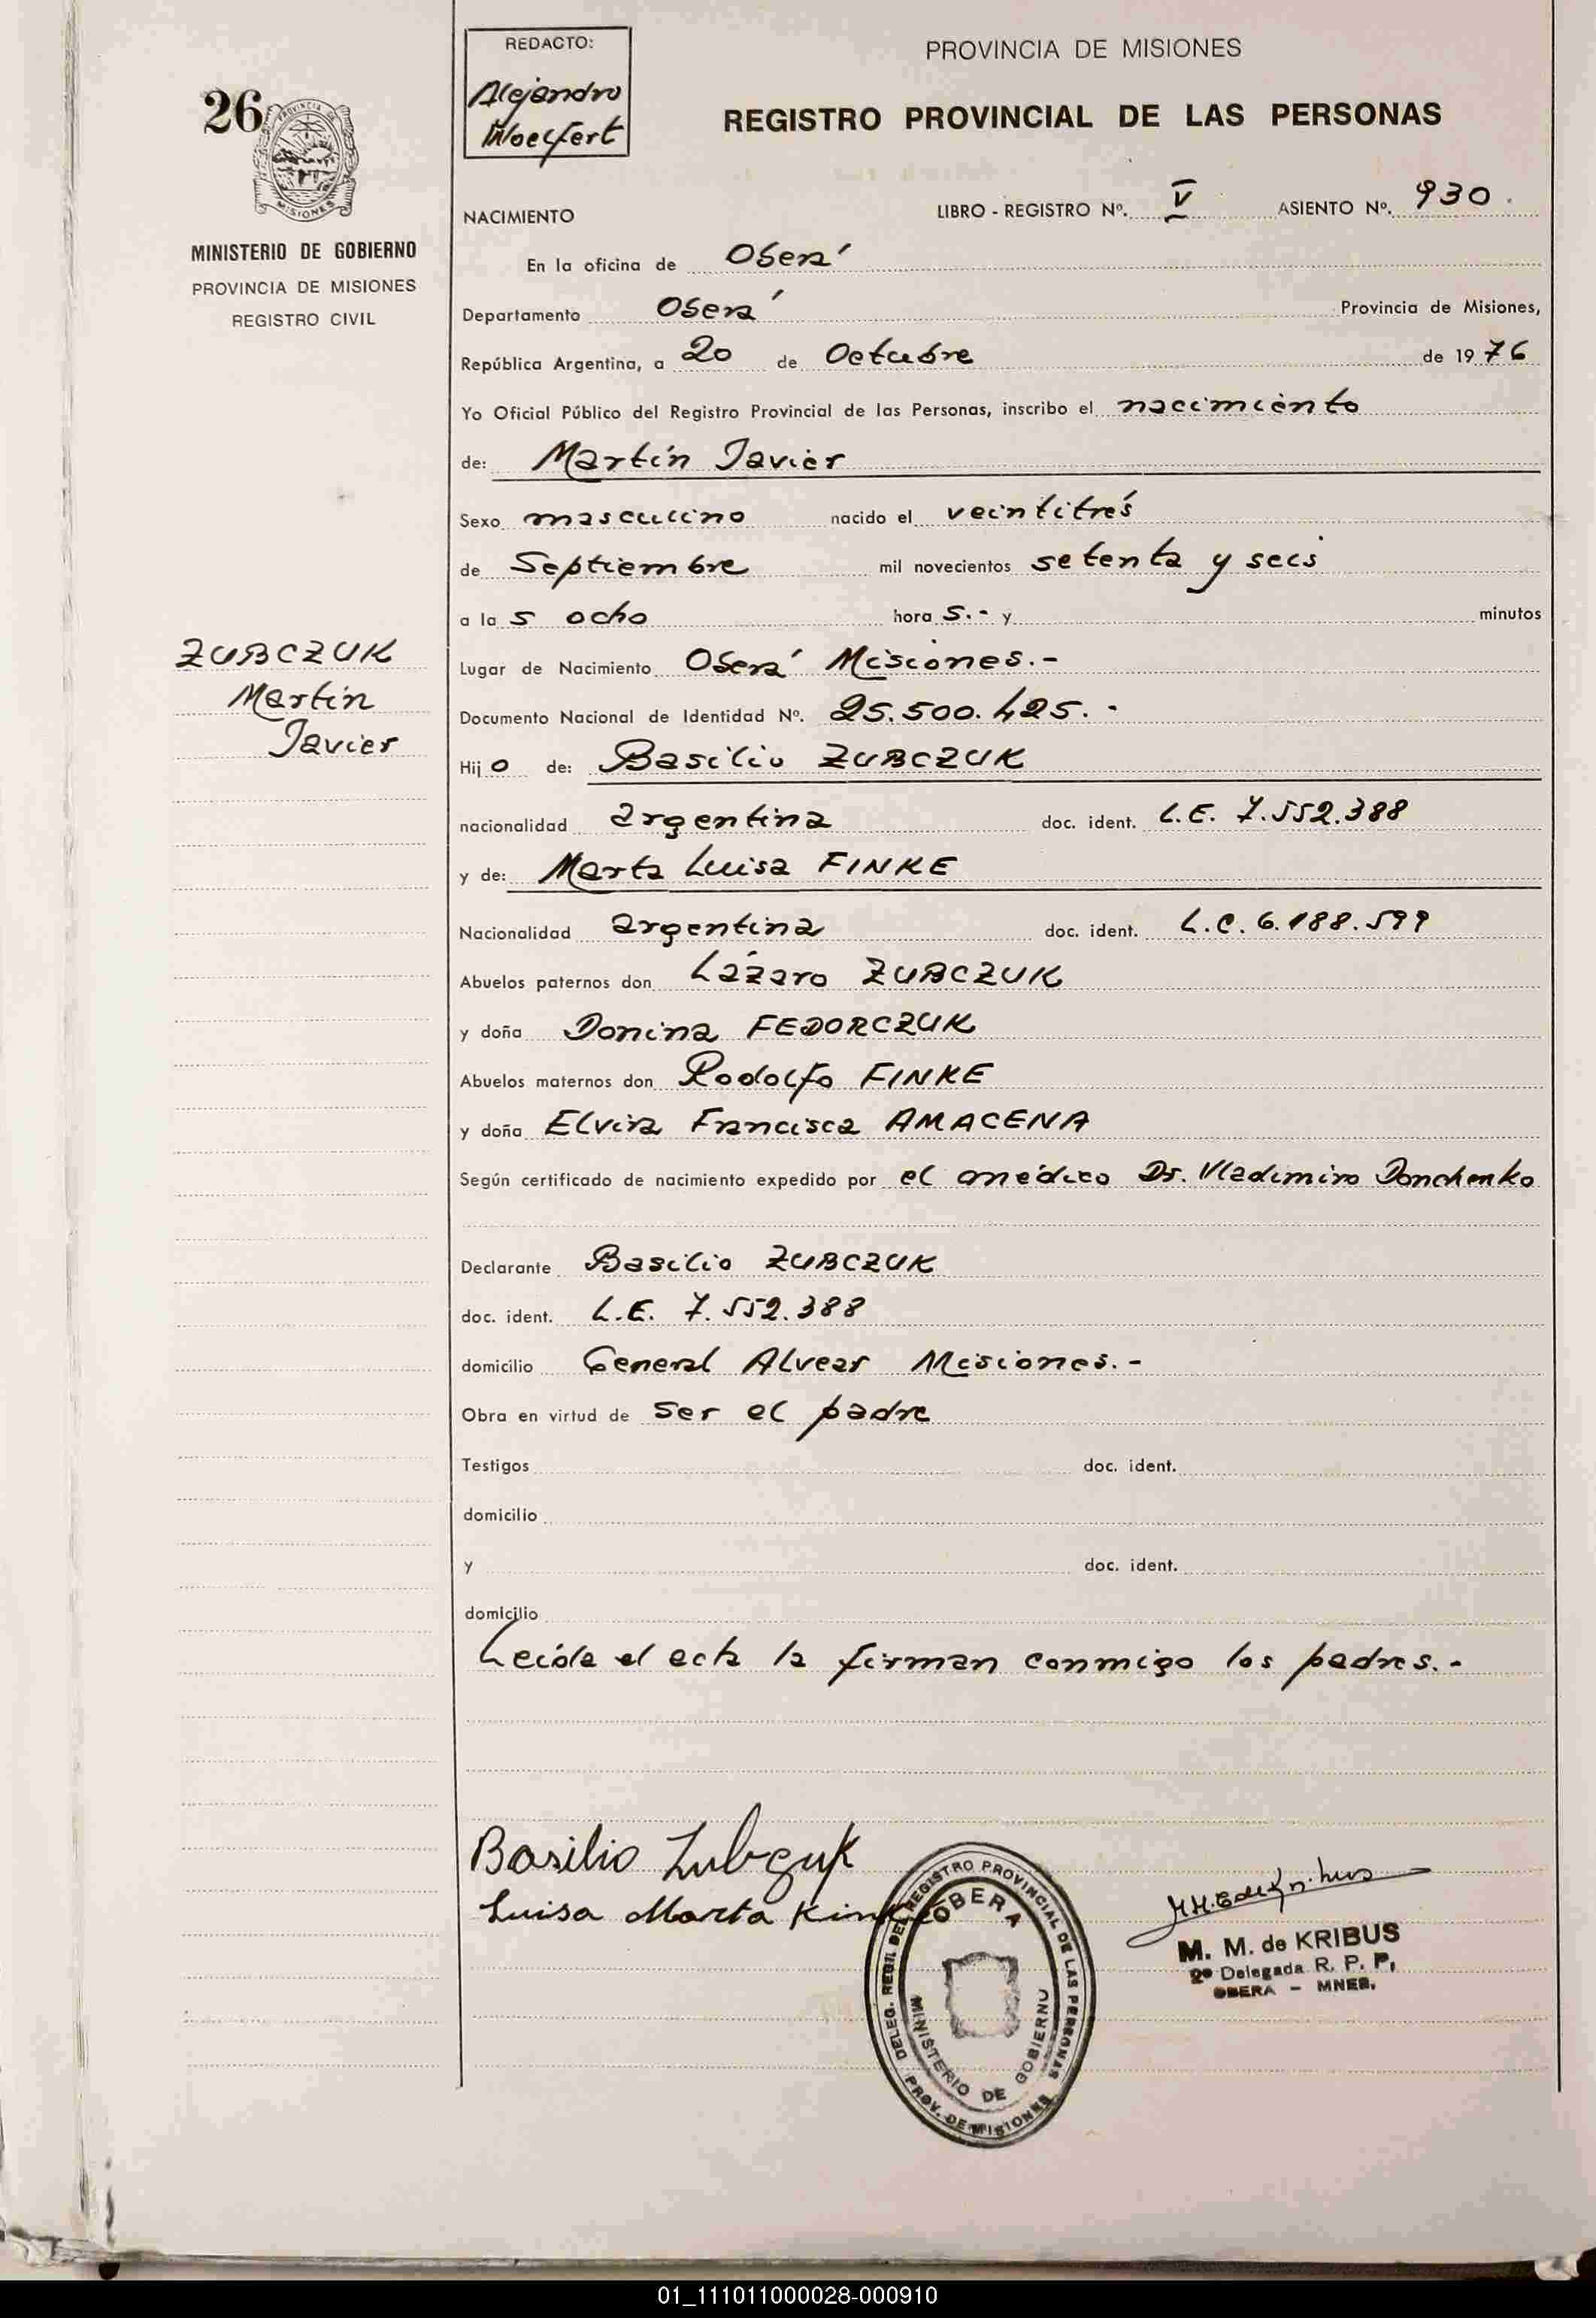 26
MINISTERIO DE GOBIERNO
PROVINCIA DE MISIONES
REGISTRO CIVIL
ZUBCZUK
Martín
Javier
REDACTO:
Alejandro
Woelfert
PROVINCIA DE MISIONES
REGISTRO PROVINCIAL DE LAS PERSONAS
NACIMIENTO LIBRO - REGISTRO Nº. V ASIENTO Nº. 930.
En la oficina de Oberá
Departamento Oberá Provincia de Misiones,
República Argentina, a 20 de Octubre de 1976
Yo Oficial Público del Registro Provincial de las Personas, inscribo el nacimiento
de: Martín Javier
Sexo masculino nacido el veintitrés
de Septiembre mil novecientos setenta y seis
a las ocho hora s.- y minutos
Lugar de Nacimiento Oberá Misiones.-
Documento Nacional de Identidad Nº. 25.500.425.-
Hijo de: Basilio ZUBCZUK
nacionalidad argentina doc. ident. L.E. 7.552.388
y de: Marta Luisa FINKE
Nacionalidad argentina doc. ident. L.C. 6.188.599
Abuelos paternos don Lázaro ZUBCZUK
y doña Donina FEDORCZUK
Abuelos maternos don Rodolfo FINKE
y doña Elvira Francisca AMACENA
Según certificado de nacimiento expedido por el médico Dr. Vladimiro Donchenko
Declarante Basilio ZUBCZUK
doc. ident. L.E. 7.552.388
domicilio General Alvear Misiones.-
Obra en virtud de ser el padre
Testigos doc. ident.
domicilio
y doc. ident.
domicilio
Leída el acta la firman conmigo los padres.-
Basilio Zubczuk
Luisa Marta
DELEG. REGIL DEL REGISTRO PROVINCIAL DE LAS PERSONAS
OBERA
MINISTERIO DE GOBIERNO
PROV. DE MISIONES
M. M. de KRIBUS
2º Delegada R. P. P.
OBERA - MNES.
01_111011000028-000910